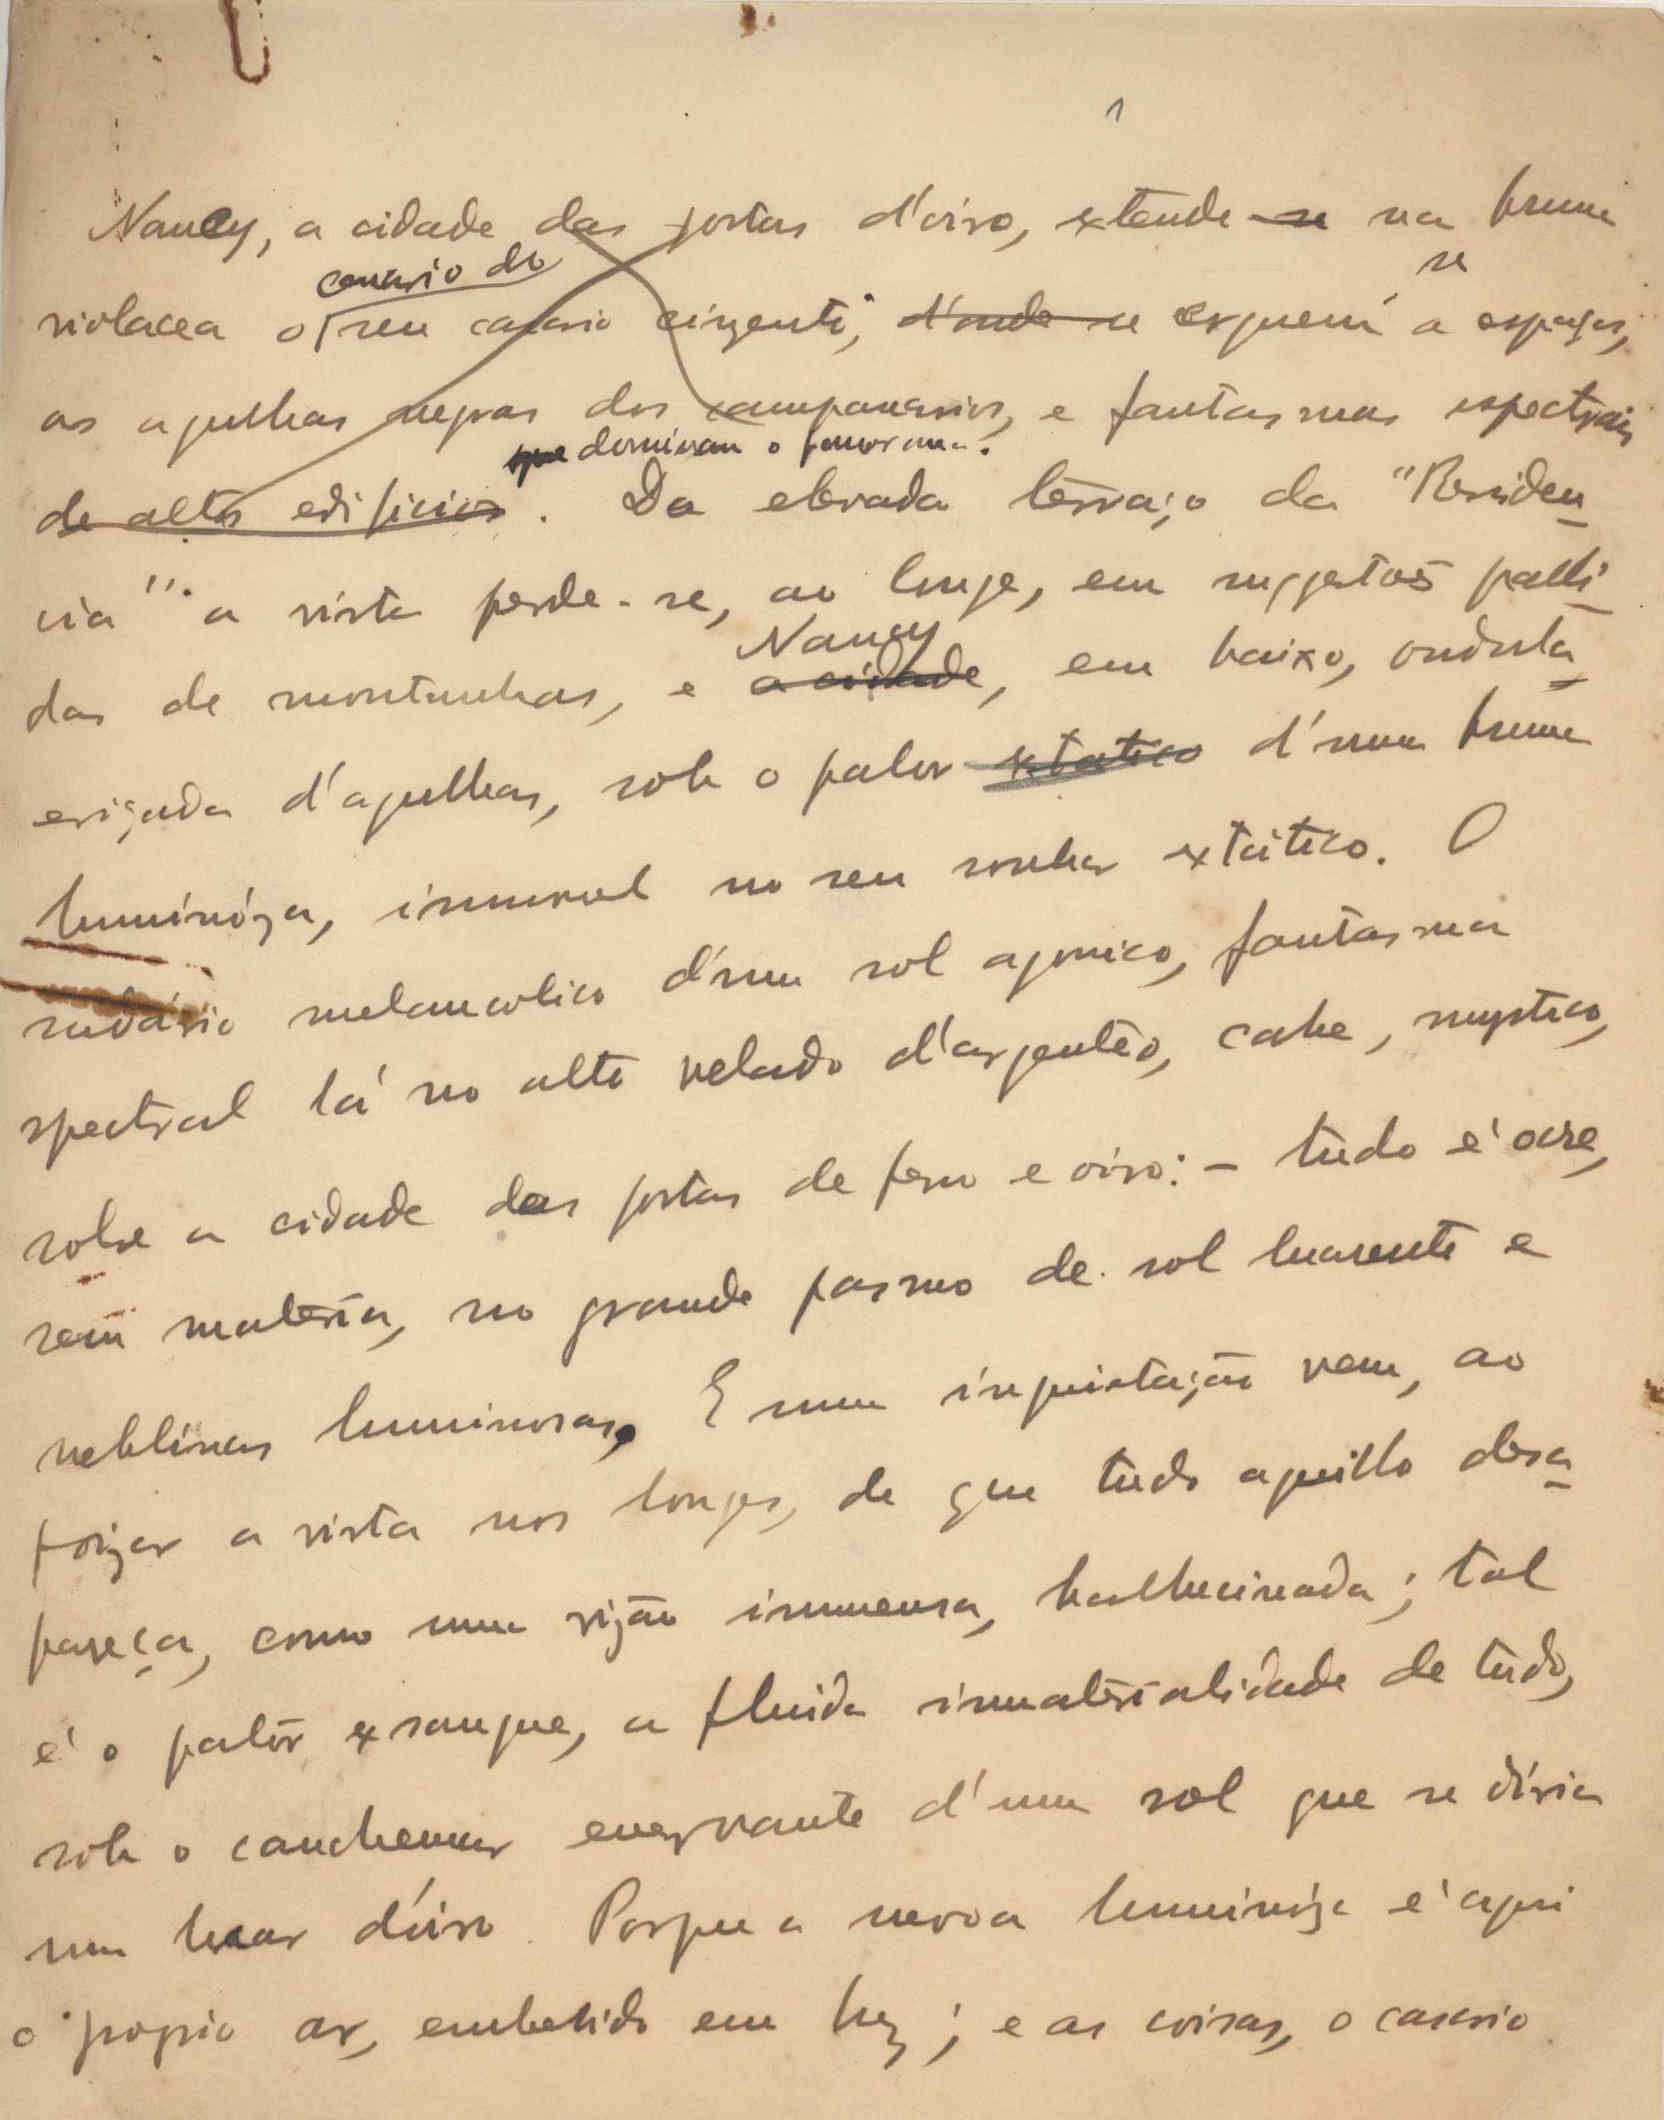 1
Nancy, a cidade das portas d'oiro, extende-se na bruma
cenario do
violacea o seu casario cinzento, d'onde se erguem a espaços,
se
as agulhas negras dos campanarios, e fantasmas espectrais
que dominam o panorama.
de altos edificios. Da elevada terraço da "Residen-
cia" a vista perde-se, ao longe, em sugestões palli-
Nancy
das de montanhas, e a cidade, em baixo, ondula-
eriçada d'agulhas, sob o palor extatico d'uma bruma
luminóza, immovel no seu sonhar extático. O
sudário melancolico d'um sol agonico, fantasma
spectral lá no alto velado d'argenteo, cahe, mystico,
sobre a cidade das portas de ferro e oiro: - tudo é ocre,
sem materia, no grande pasmo de sol luarento e
neblinas luminosas. E uma inquietação vem, ao
poizar a vista nos longes, de que tudo aquillo desa-
pareça, como uma vizão immensa, halhucinada; tal
é o palôr exsangue, a fluida immaterialidade de tudo,
sob o cauchemar enervante d'um sol que se diria
um luar d'oiro. Porque a nevoa luminóza é aqui
o proprio ar, embebido em luz; e as coisas, o casario